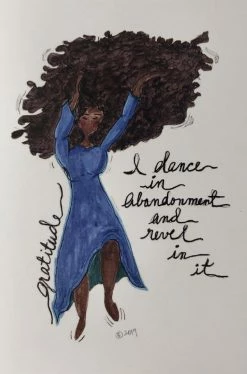 gratitude
I dance
in
abandonment
and
revel
in
it
© 2019